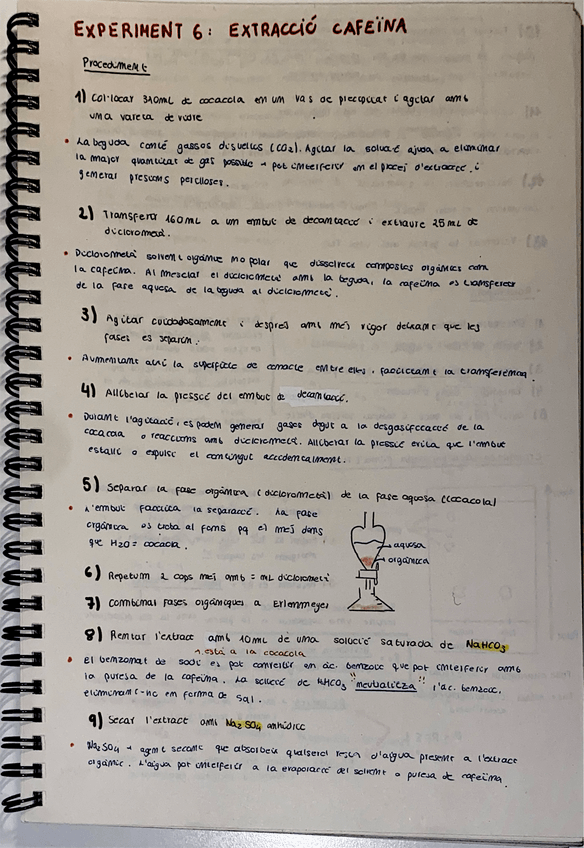 EXPERIMENT 6: EXTRACCIÓ CAFEÏNA
Procediment
1) Col·locar 340mL de cocacola en un vas de precipitat i agitar amb
una vareta de vidre
• La beguda conté gasos dissolts (CO2). Agitar la solució ajuda a eliminar
la major quantitat de gas possible → pot interferir en el procés d'extracció i
generar pressions perilloses.
2) Transferir 160mL a un embut de decantació i extraure 25mL de
diclorometà.
• Diclorometà solvent orgànic no polar que dissolreix compostos orgànics com
la cafeïna. Al mesclar el diclorometà amb la beguda, la cafeïna es transfereix
de la fase aquosa de la beguda al diclorometà.
3) Agitar cuidadosament i després amb més vigor deixant que les
fases es separin.
• Aumentant així la superfície de contacte entre elles, facilitant la transferència.
4) Alliberar la pressió del embut de decantació.
• Durant l'agitació, es poden generar gasos degut a la desgasificació de la
cocacola o reaccions amb diclorometà. Alliberar la pressió evita que l'embut
estalli o expulsi el contingut accidentalment.
5) Separar la fase orgànica (diclorometà) de la fase aquosa (cocacola)
• L'embut facilita la separació. La fase
orgànica es troba al fons pq és més dens
que H2O = cocacola.
aquosa
orgànica
6) Repetim 2 cops més amb = mL diclorometà
7) Combinar fases orgàniques a Erlenmeyer
8) Rentar l'extracte amb 10mL de una solució saturada de NaHCO3
està a la cocacola
• El benzonat de sodi es pot convertir en àc. benzoic que pot interferir amb
la puresa de la cafeïna. La solució de NHCO3 "neutralitza" l'àc. benzoic,
eliminant-lo en forma de sal.
9) Secar l'extracte amb Na2SO4 anhídric
• Na2SO4 → agent secant que absorbeix qualsevol resta d'aigua present a l'extracte
orgànic. L'aigua pot interferir a la evaporació del solvent o puresa de cafeïna.